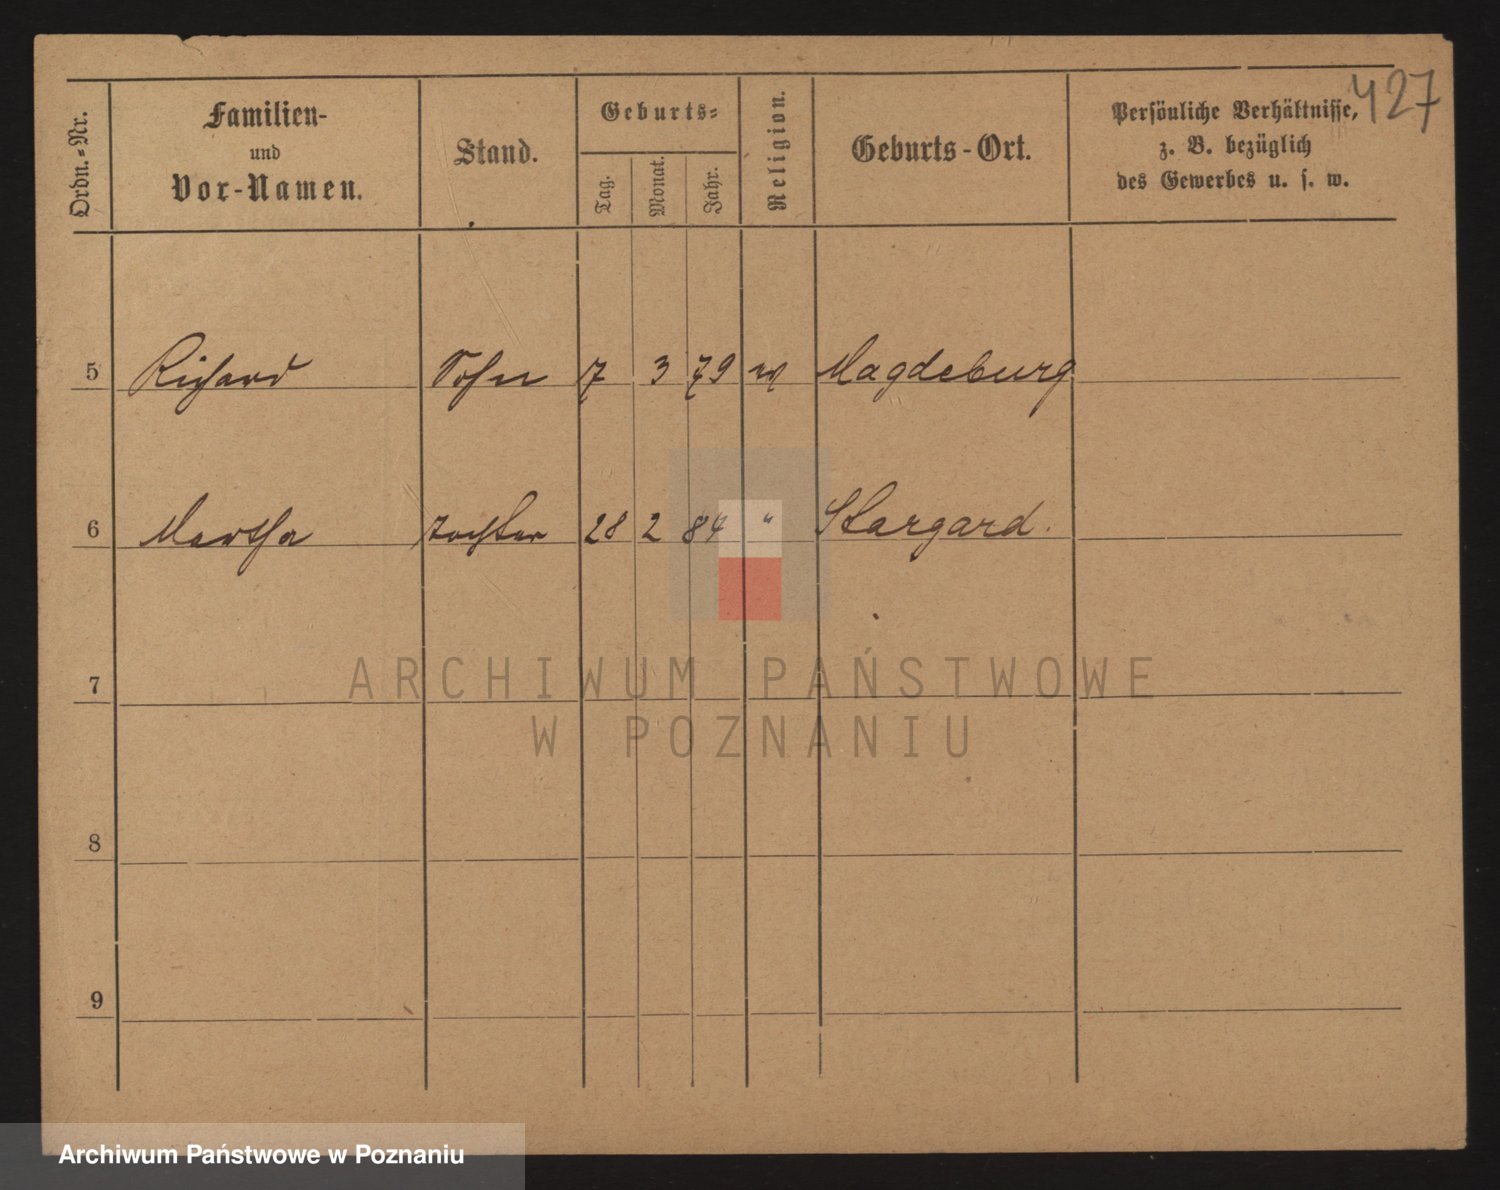 427
Ordn.-Nr.
Familien-
und
Vor-Namen.
Stand.
Geburts-
Tag.
Monat.
Jahr.
Religion.
Geburts-Ort.
Persönliche Verhältnisse,
z. B. bezüglich
des Gewerbes u. s. w.
5 Richard Sohn 7 3 79 Magdeburg
6 Martha Tochter 28 2 84 " Stargard.
7
ARCHIWUM PAŃSTWOWE
W POZNANIU
8
9
Archiwum Państwowe w Poznaniu